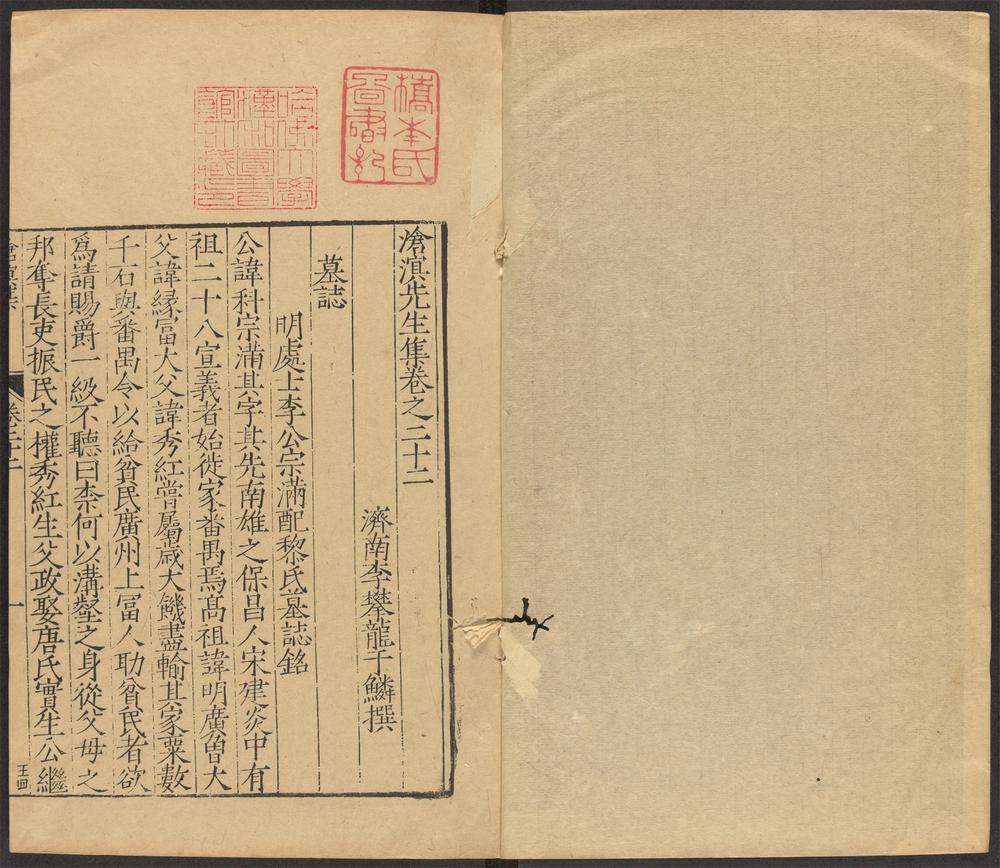 橋本氏
哈佛大學
漢和圖書
館珍藏印
滄溟先生集卷之二十二
濟南李攀龍于鱗撰
墓誌
明處士李公宗滿配黎氏墓誌銘
公諱科宗滿其字其先南雄之保昌人宋建炎中有
祖二十八宣義者始徙家番禺焉高祖諱明廣曾大
父諱緣富大父諱秀紅嘗屬歲大饑盡輸其家粟數
千石與番禺令以給貧民廣州上冨人助貧民者欲
爲請賜爵一級不聽曰柰何以溝壑之身從父母之
邦奪長吏振民之權秀紅生父政娶唐氏實生公繼
卷二十二
一